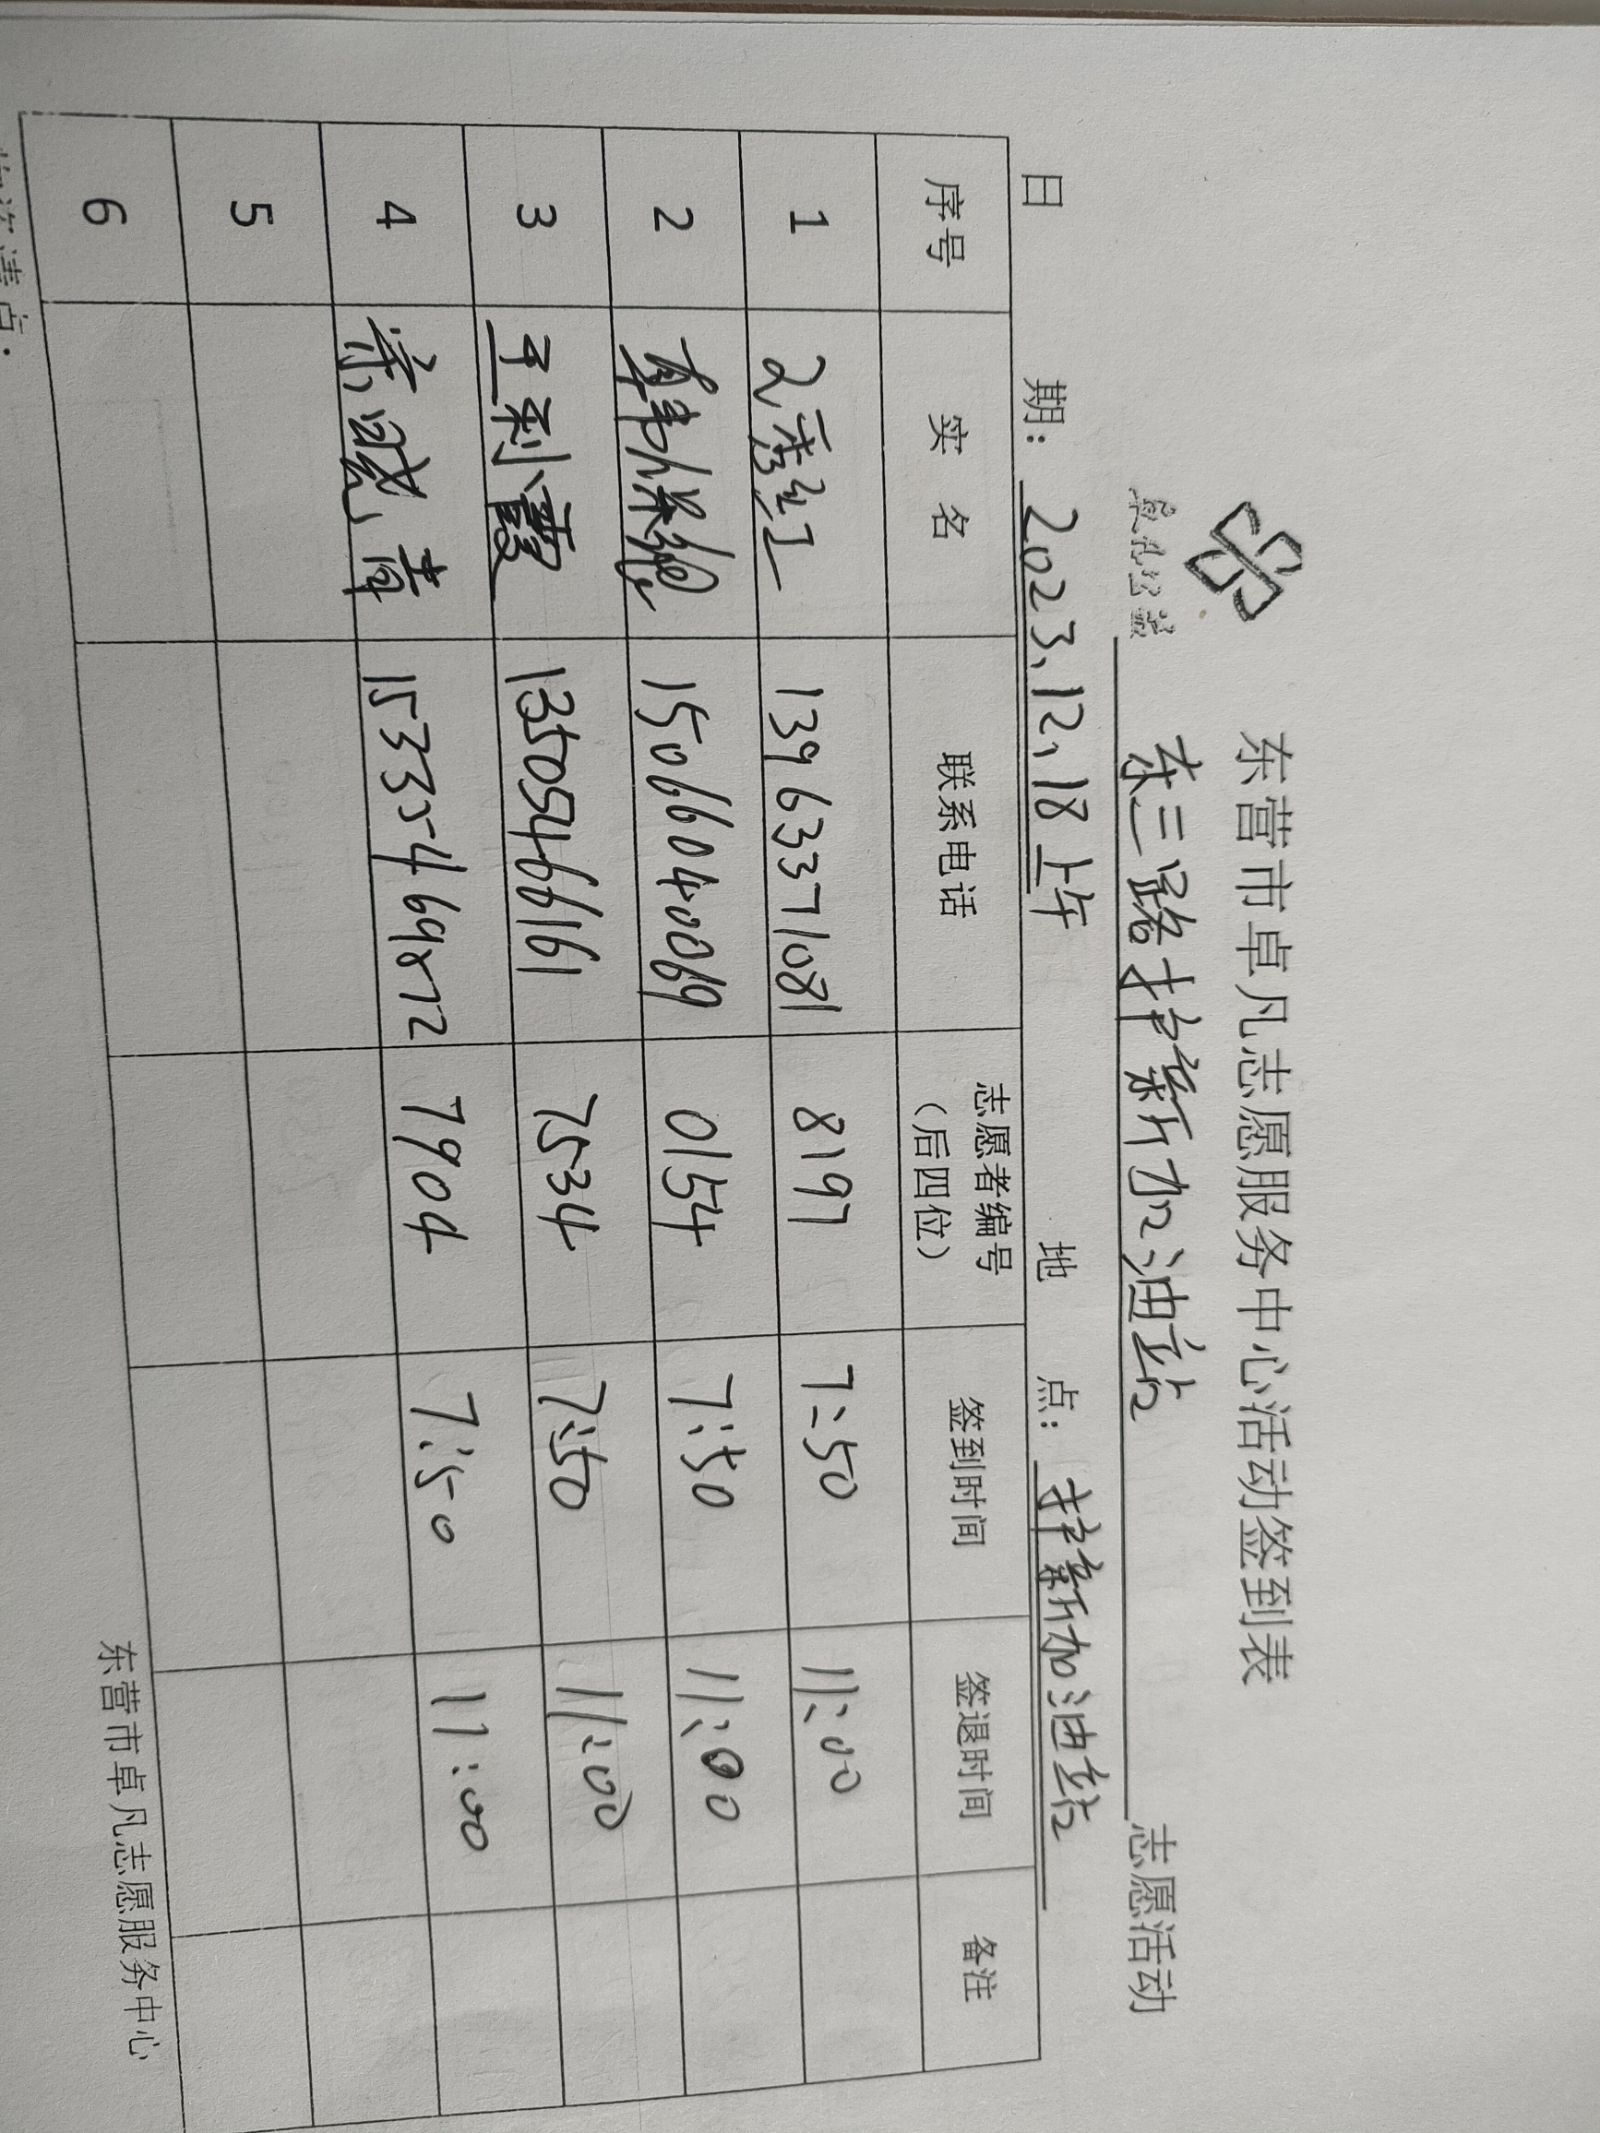 东营市卓凡志愿服务中心活动签到表
卓凡公益
东三路护新加油站 志愿活动
日 期: 2023、12、18 上午 地 点: 护新加油站
序号 实 名 联系电话 志愿者编号（后四位） 签到时间 签退时间 备注
1 秀红 13963371081 8197 7:50 11:00
2 15066040069 0154 7:50 11:00
3 王利霞 13505466161 7534 7:50 11:00
4 7904 7:50 11:00
5
6
东营市卓凡志愿服务中心